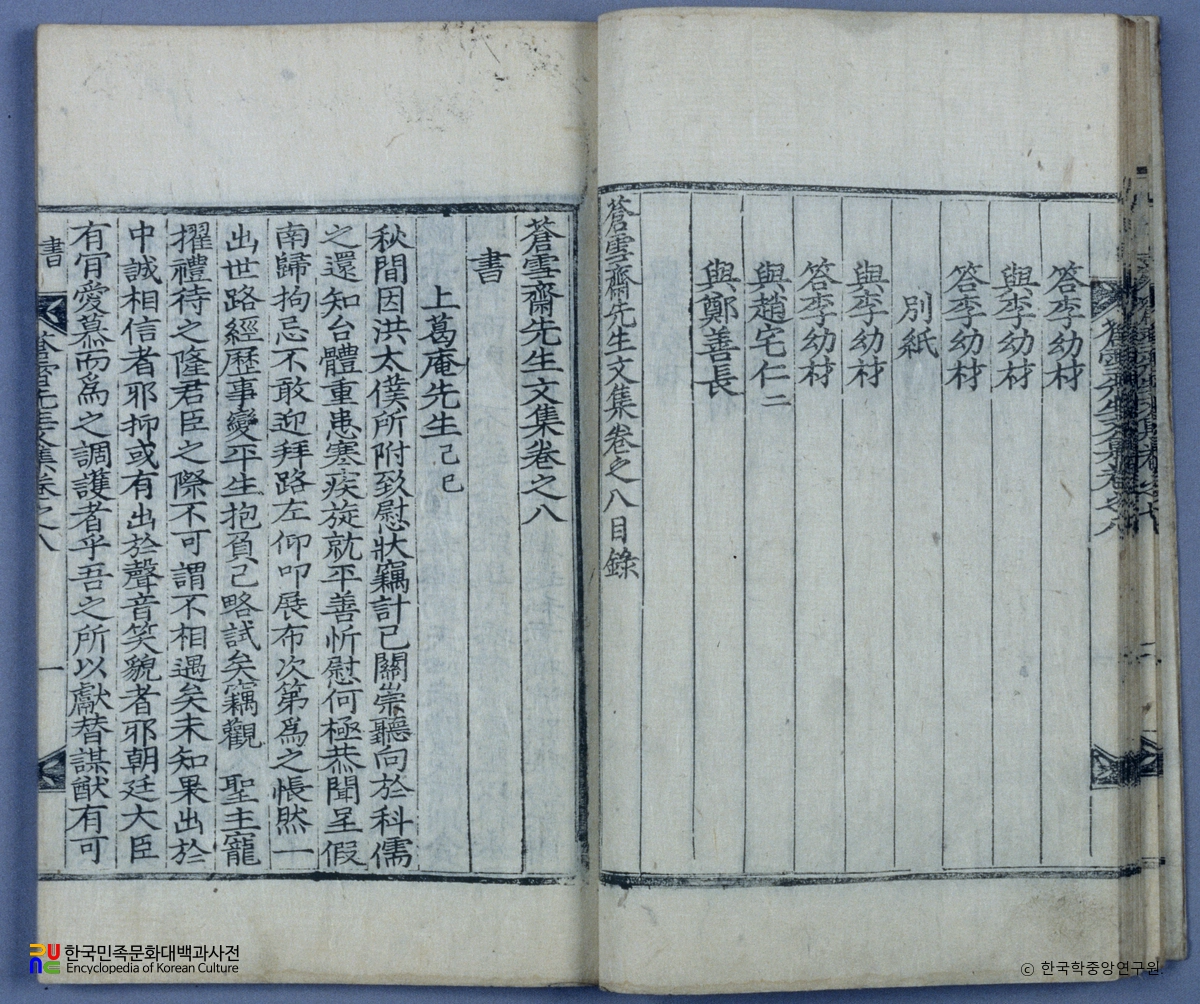 答李幼材
與李幼材
答李幼材
別紙
與李幼材
答李幼材
與趙宅仁 二
與鄭善長
蒼雪齋先生文集卷之八目錄
蒼雪齋先生文集卷之八
書
上葛庵先生 己巳
秋間因洪太僕所附致慰狀竊計已關崇聽向於科儒
之還知台體重患寒疾旋就平善忻慰何極恭聞呈假
南歸拘忌不敢迎拜路左仰叩展布次第爲之悵然一
出世路經歷事變平生抱負已略試矣竊觀 聖主寵
擢禮待之隆君臣之際不可謂不相遇矣未知果出於
中誠相信者邪抑或有出於聲音笑貌者邪朝廷大臣
有宵愛慕而爲之調護者乎吾之所以獻替謀猷有可
書
蒼雪先生文集卷之八
一
한국민족문화대백과사전
Encyclopedia of Korean Culture
© 한국학중앙연구원.